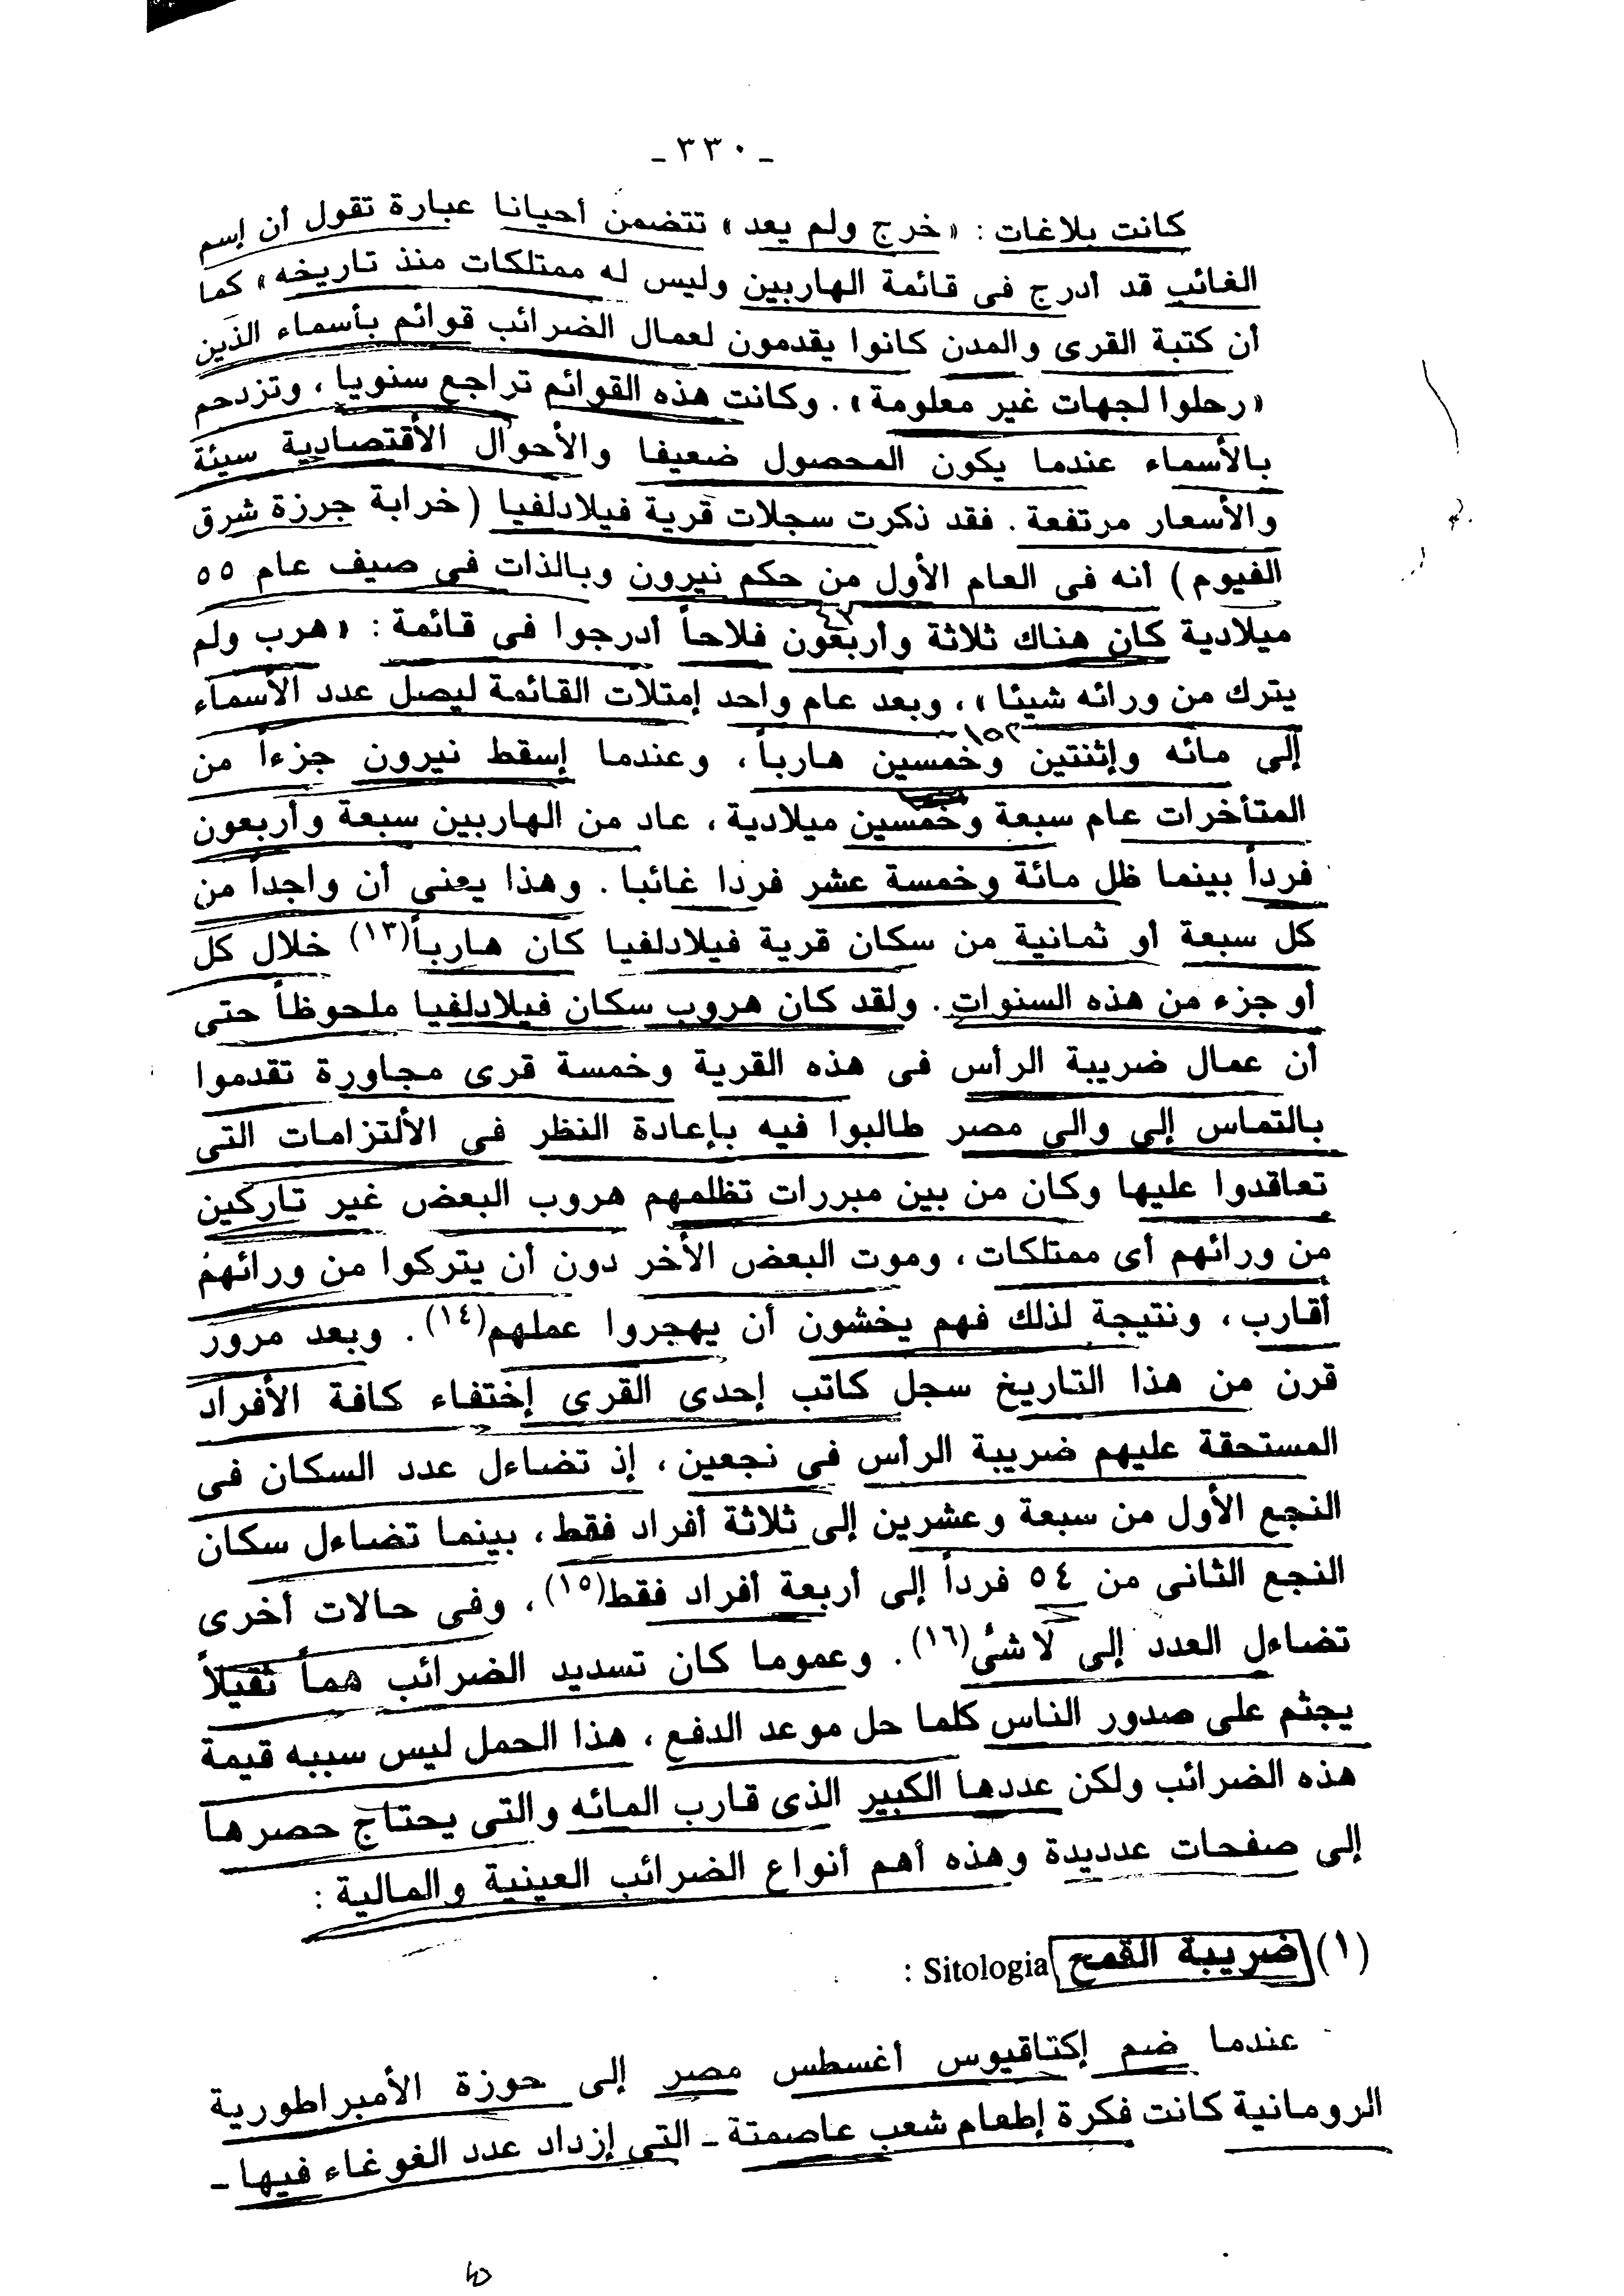 ـ ٣٣٠ ـ
كانت بلاغات : « خرج ولم يعد » تتضمن أحيانا عبارة تقول أن إسم
الغائب قد أدرج فى قائمة الهاربين وليس له ممتلكات منذ تاريخه » كما
أن كتبة القرى والمدن كانوا يقدمون لعمال الضرائب قوائم بأسماء الذين
« رحلوا لجهات غير معلومة » . وكانت هذه القوائم تراجع سنويا ، وتزدحم
بالأسماء عندما يكون المحصول ضعيفا والأحوال الأقتصادية سيئة
والأسعار مرتفعة . فقد ذكرت سجلات قرية فيلادلفيا ( خرابة جرزة شرق
الفيوم ) أنه فى العام الأول من حكم نيرون وبالذات فى صيف عام ٥٥
٤٣
ميلادية كان هناك ثلاثة وأربعون فلاحاً أدرجوا فى قائمة : « هرب ولم
يترك من ورائه شيئا » ، وبعد عام واحد إمتلات القائمة ليصل عدد الأسماء
١٥٢
إلى مائه وإثنتين وخمسين هارباً ، وعندما إسقط نيرون جزءاً من
المتأخرات عام سبعة وخمسين ميلادية ، عاد من الهاربين سبعة وأربعون
فرداً بينما ظل مائة وخمسة عشر فردا غائبا . وهذا يعنى أن واحداً من
كل سبعة أو ثمانية من سكان قرية فيلادلفيا كان هارباً(١٣) خلال كل
أو جزء من هذه السنوات . ولقد كان هروب سكان فيلادلفيا ملحوظاً حتى
أن عمال ضريبة الرأس فى هذه القرية وخمسة قرى مجاورة تقدموا
بالتماس إلى والى مصر طالبوا فيه بإعادة النظر فى الألتزامات التى
تعاقدوا عليها وكان من بين مبررات تظلمهم هروب البعض غير تاركين
من ورائهم أى ممتلكات ، وموت البعض الأخر دون أن يتركوا من ورائهم
أقارب ، ونتيجة لذلك فهم يخشون أن يهجروا عملهم(١٤) . وبعد مرور
قرن من هذا التاريخ سجل كاتب إحدى القرى إختفاء كافة الأفراد
المستحقة عليهم ضريبة الرأس فى نجعين ، إذ تضاءل عدد السكان فى
النجع الأول من سبعة وعشرين إلى ثلاثة أفراد فقط ، بينما تضاءل سكان
النجع الثانى من ٥٤ فرداً إلى أربعة أفراد فقط(١٥) ، وفى حالات أخرى
تضاءل العدد إلى لاشئ(١٦) . وعموما كان تسديد الضرائب هماً ثقيلاً
يجثم على صدور الناس كلما حل موعد الدفع ، هذا الحمل ليس سببه قيمة
هذه الضرائب ولكن عددها الكبير الذى قارب المائه والتى يحتاج حصرها
إلى صفحات عدديدة وهذه أهم أنواع الضرائب العينية والمالية :
(١) ضريبة القمح Sitologia :
عندما ضم إكتاڤيوس أغسطس مصر إلى حوزة الأمبراطورية
الرومانية كانت فكرة إطعام شعب عاصمتة ـ التى إزداد عدد الغوغاء فيها ـ